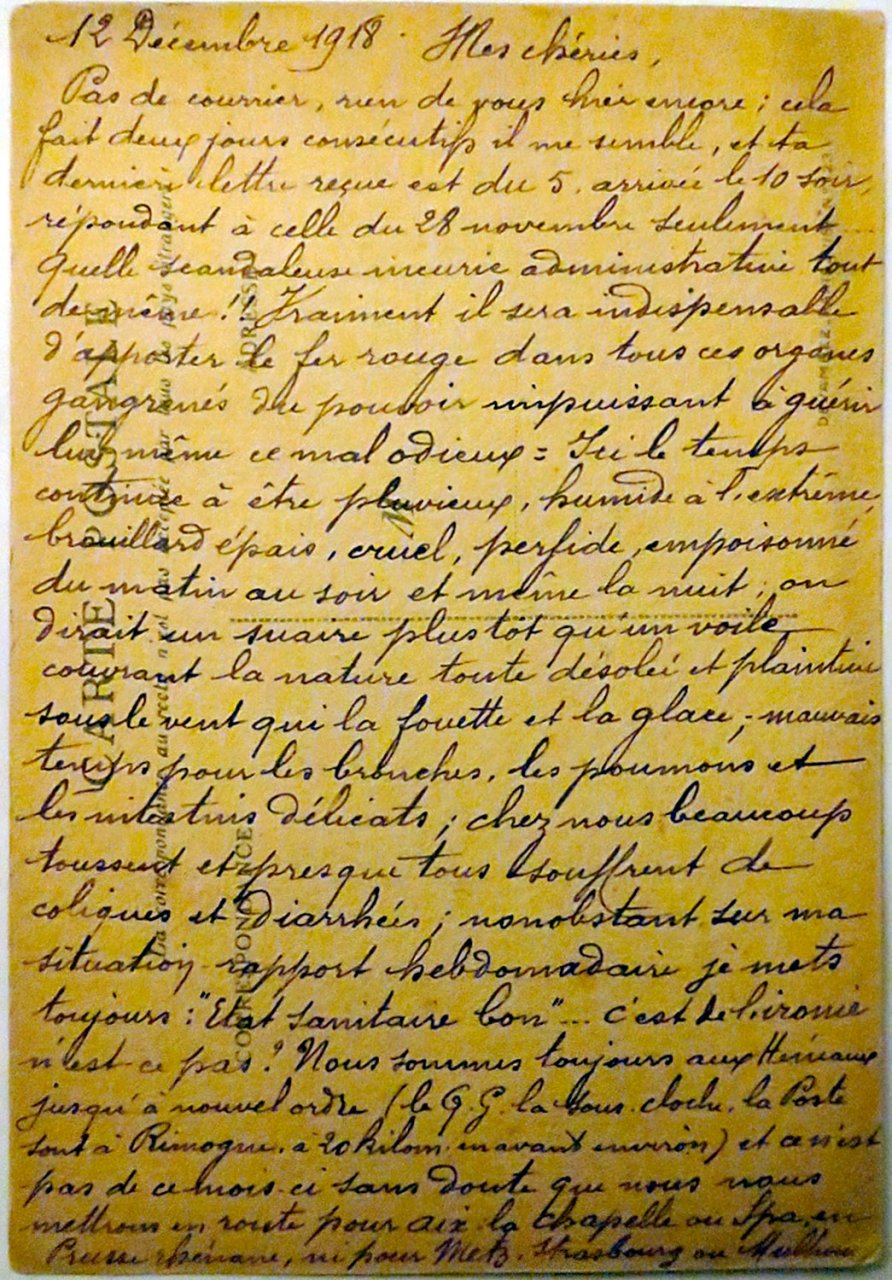 12 Décembre 1918. Mes chéries,
Pas de courrier, rien de vous hier encore ; cela
fait deux jours consécutifs il me semble, et ta
dernière lettre reçue est du 5. arrivée le 10 soir,
répondant à celle du 28 novembre seulement...
quelle scandaleuse incurie administrative tout
de même !! Vraiment il sera indispensable
d'apporter le fer rouge dans tous ces organes
gangrenés du pouvoir impuissant à guérir
lui même ce mal odieux = Ici le temps
continue à être pluvieux, humide à l'extrême,
brouillard épais, cruel, perfide, empoisonné
du matin au soir et même la nuit ; on
dirait un suaire plustôt qu'un voile
couvrant la nature toute désolée et plaintive
sous le vent qui la fouette et la glace ; mauvais
temps pour les bronches, les poumons et
les intestins délicats ; chez nous beaucoup
toussent et presque tous souffrent de
coliques et diarrhées ; nonobstant sur ma
situation rapport hebdomadaire je mets
toujours : "Etat sanitaire bon"... c'est de l'ironie
n'est-ce pas ? Nous sommes toujours aux
jusqu'à nouvel ordre (le Q.G. la sous. la Poste
sont à Rimogne. à 20 kilom. en avant environ) et ce n'est
pas de ce mois-ci sans doute que nous nous
mettrons en route pour aix la chapelle ou Spa. en
Prusse rhénane, ni pour Metz. Strasbourg ou
CARTE POSTALE
La correspondance au recto n'est pas acceptée par tous les pays étrangers
CORRESPONDANCE
ADRESSE
M